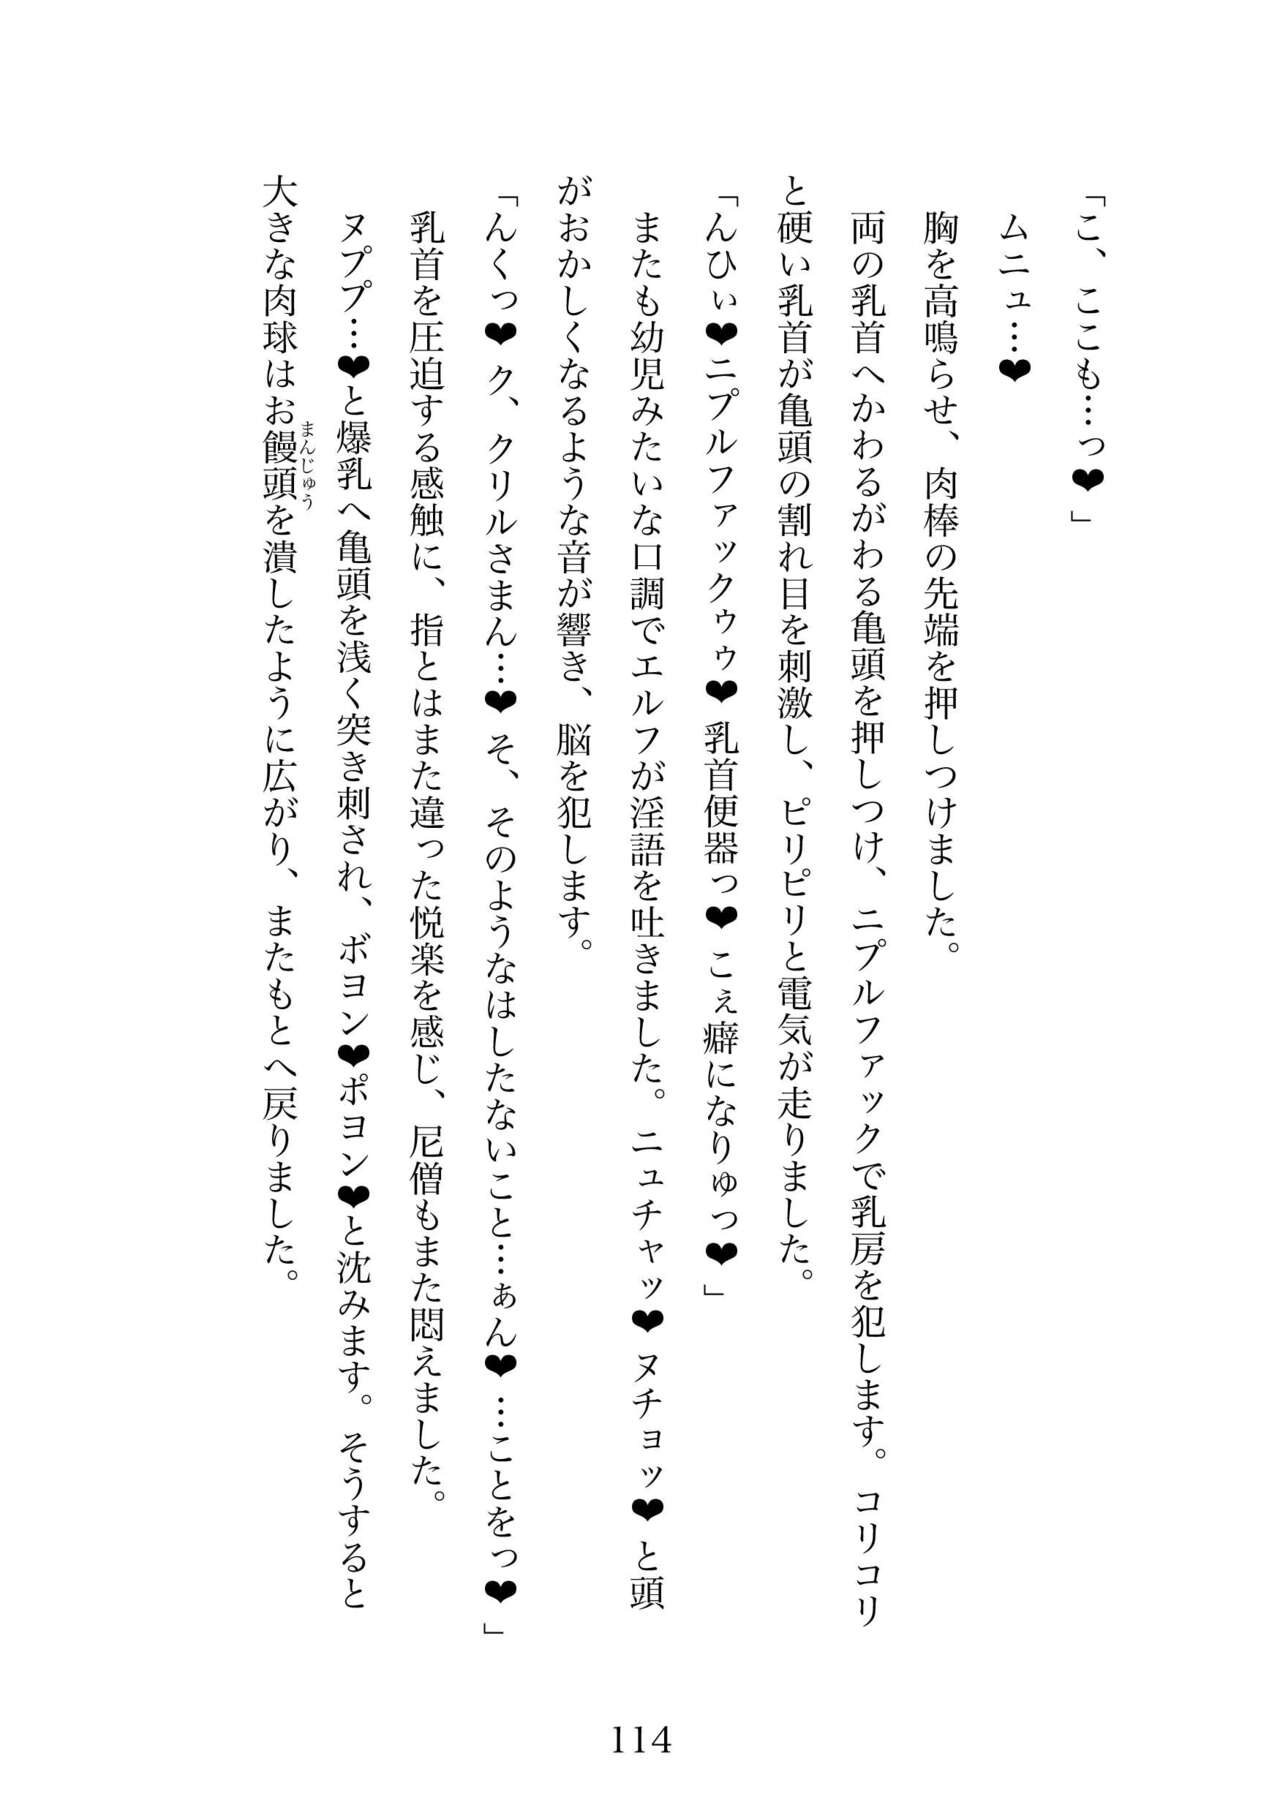 「こ、ここも…っ❤」
ムニュ…❤
胸を高鳴らせ、肉棒の先端を押しつけました。
両の乳首へかわるがわる亀頭を押しつけ、ニプルファックで乳房を犯します。コリコリ
と硬い乳首が亀頭の割れ目を刺激し、ピリピリと電気が走りました。
「んひぃ❤ニプルファックゥゥ❤乳首便器っ❤こぇ癖になりゅっ❤」
またも幼児みたいな口調でエルフが淫語を吐きました。ニュチャッ❤ヌチョッ❤と頭
がおかしくなるような音が響き、脳を犯します。
「んくっ❤ク、クリルさまん…❤そ、そのようなはしたないこと…ぁん❤…ことをっ❤」
乳首を圧迫する感触に、指とはまた違った悦楽を感じ、尼僧もまた悶えました。
ヌププ…❤と爆乳へ亀頭を浅く突き刺され、ボヨン❤ポヨン❤と沈みます。そうすると
大きな肉球はお饅頭まんじゅうを潰したように広がり、またもとへ戻りました。
114